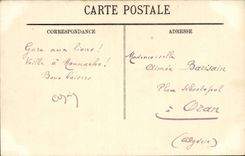 CARTE POSTALE
CORRESPONDANCE
ADRESSE
Gare aux lions!
Veille à Monnache!
Bons baisers
Mademoiselle
Aimée Barisain
Place Sébastopol
à Oran
(Algérie)